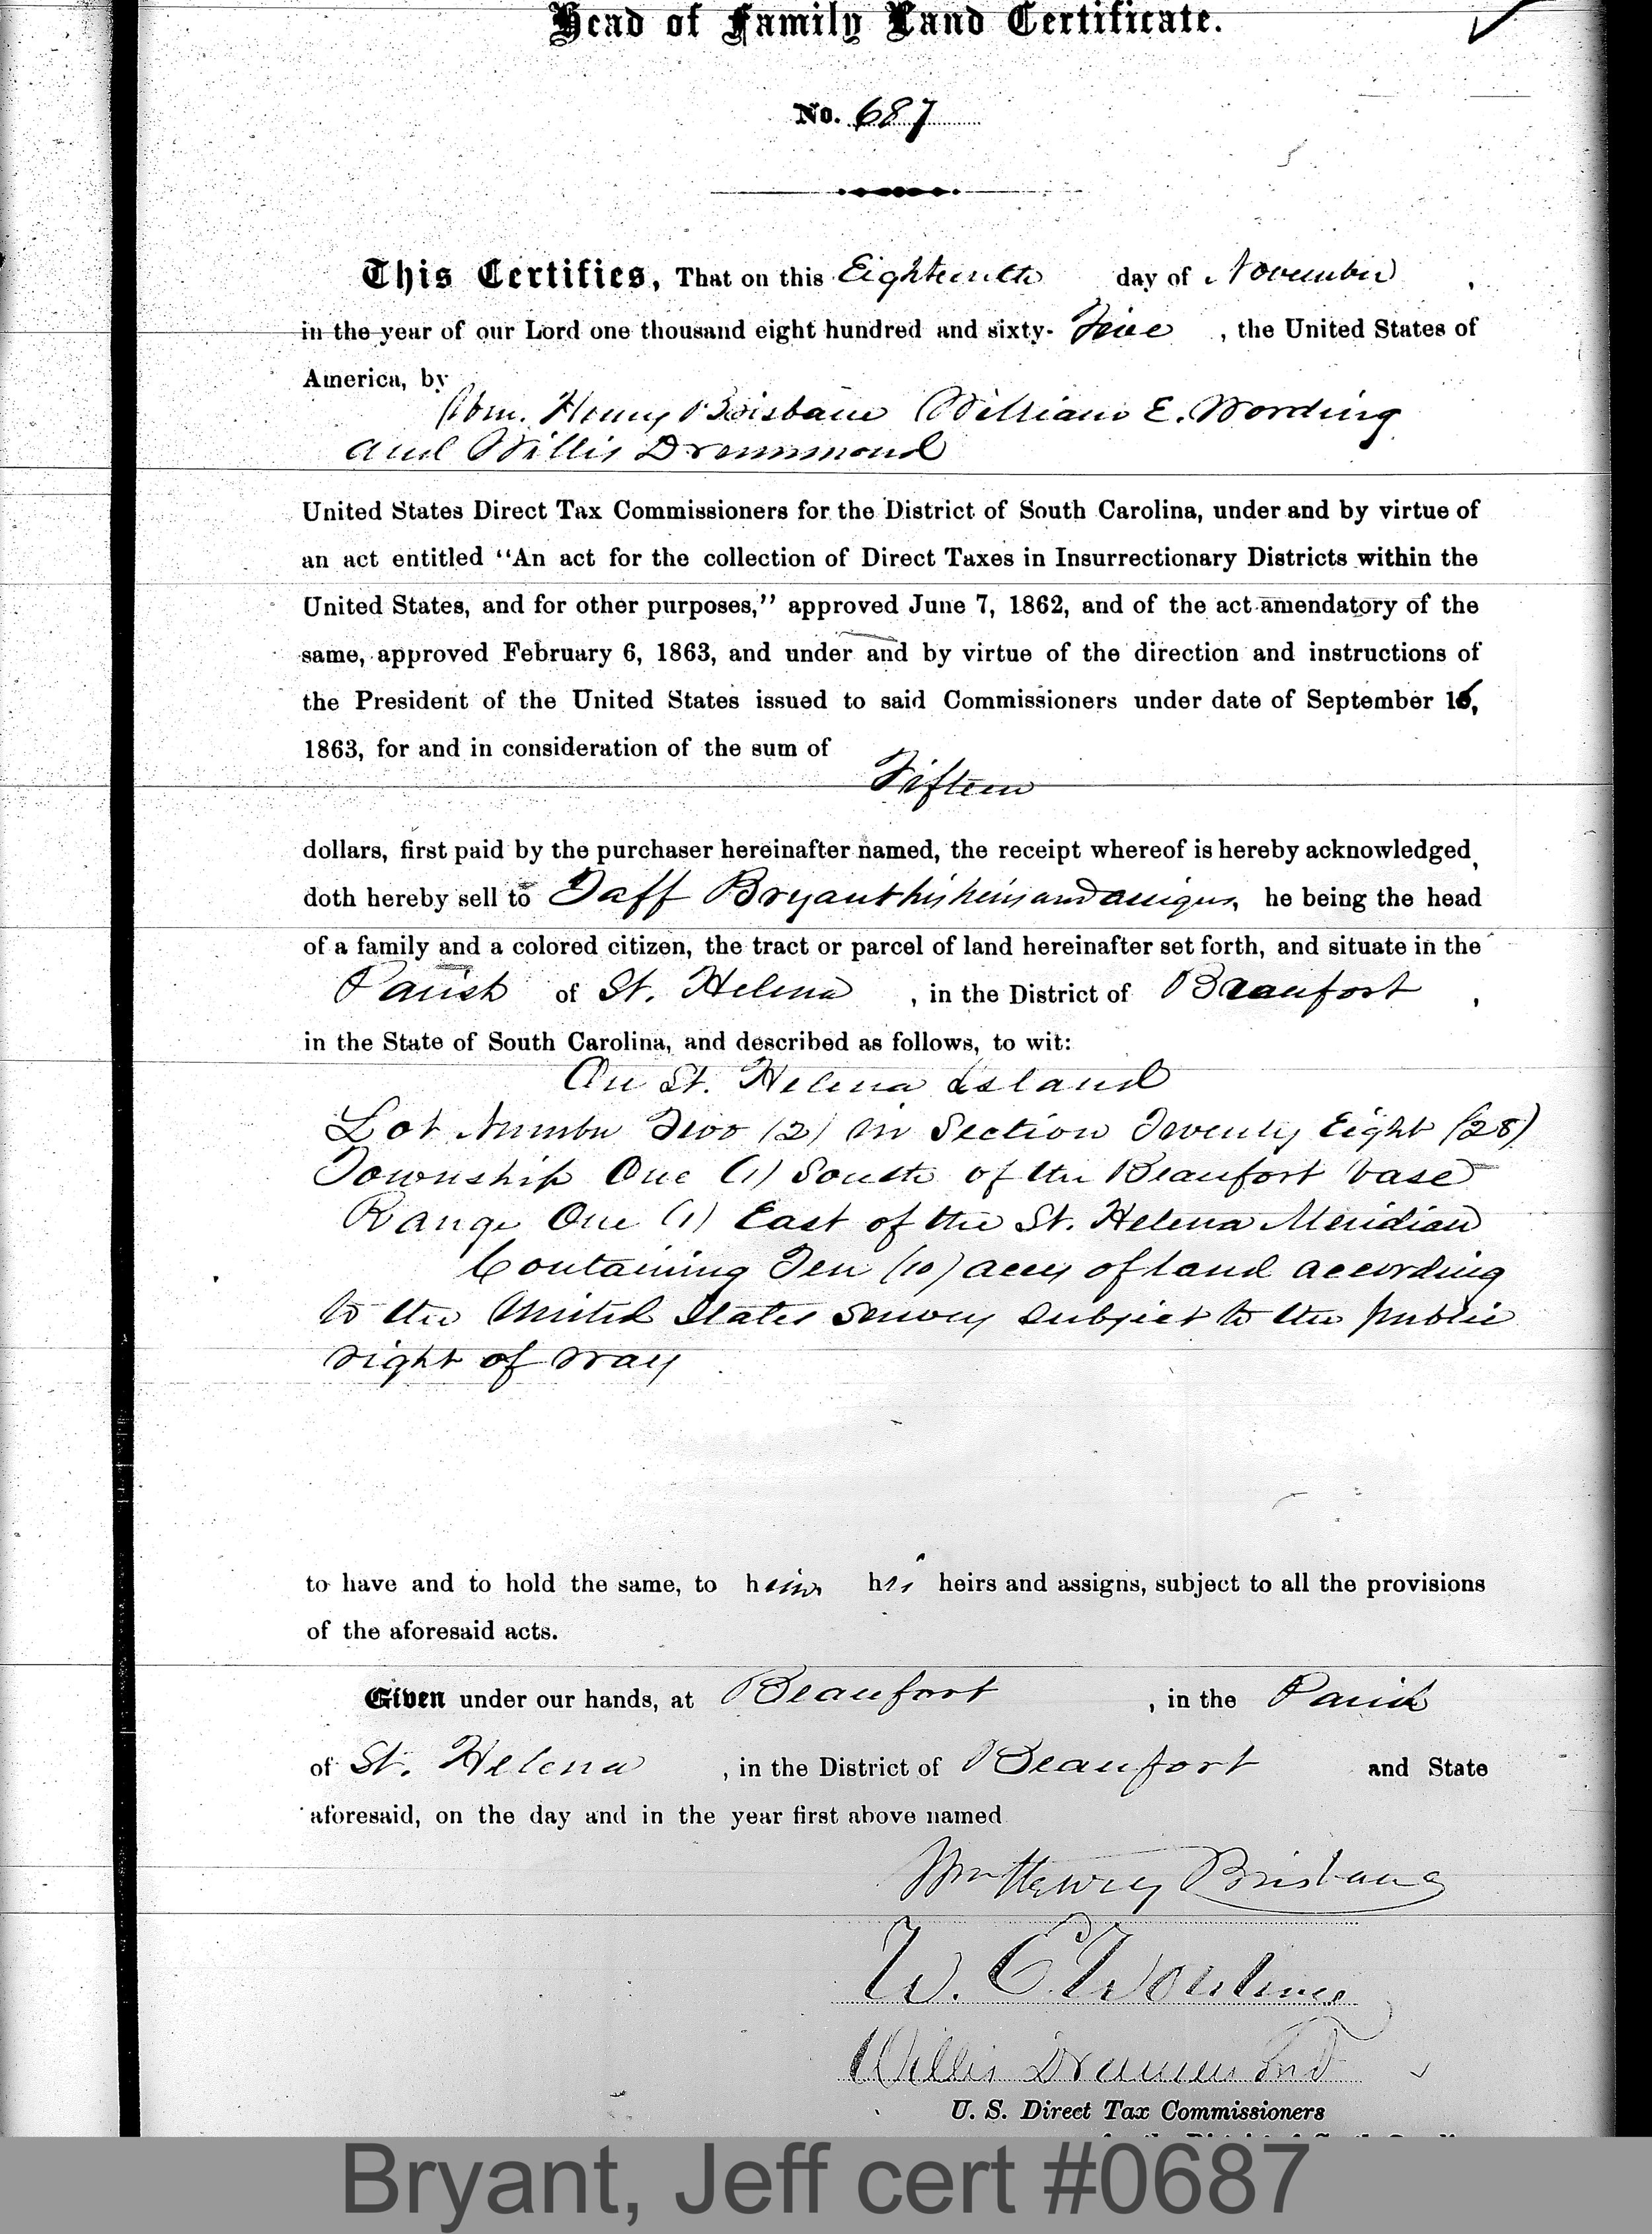 Head of Family Land Certificate.
No. 687
This Certifies, That on this Eighteenth day of November,
in the year of our Lord one thousand eight hundred and sixty-Five, the United States of
America, by
Wm. Henry Brisbane William E. Wording
and Willis Drummond
United States Direct Tax Commissioners for the District of South Carolina, under and by virtue of
an act entitled "An act for the collection of Direct Taxes in Insurrectionary Districts within the
United States, and for other purposes," approved June 7, 1862, and of the act amendatory of the
same, approved February 6, 1863, and under and by virtue of the direction and instructions of
the President of the United States issued to said Commissioners under date of September 16,
1863, for and in consideration of the sum of
Fifteen
dollars, first paid by the purchaser hereinafter named, the receipt whereof is hereby acknowledged,
doth hereby sell to Jaff Bryant his heirs and assigns, he being the head
of a family and a colored citizen, the tract or parcel of land hereinafter set forth, and situate in the
Parish of St. Helena, in the District of Beaufort,
in the State of South Carolina, and described as follows, to wit:
On St. Helena Island
Lot Number Two (2) in Section Twenty Eight (28)
Township One (1) South of the Beaufort base
Range One (1) East of the St. Helena Meridian
Containing Ten (10) acres of land according
to the United States Survey subject to the public
right of way
to have and to hold the same, to him his heirs and assigns, subject to all the provisions
of the aforesaid acts.
Given under our hands, at Beaufort, in the Parish
of St. Helena, in the District of Beaufort and State
aforesaid, on the day and in the year first above named
Wm Henry Brisbane
W. E. Wording
Willis Drummond
U. S. Direct Tax Commissioners
Bryant, Jeff cert #0687